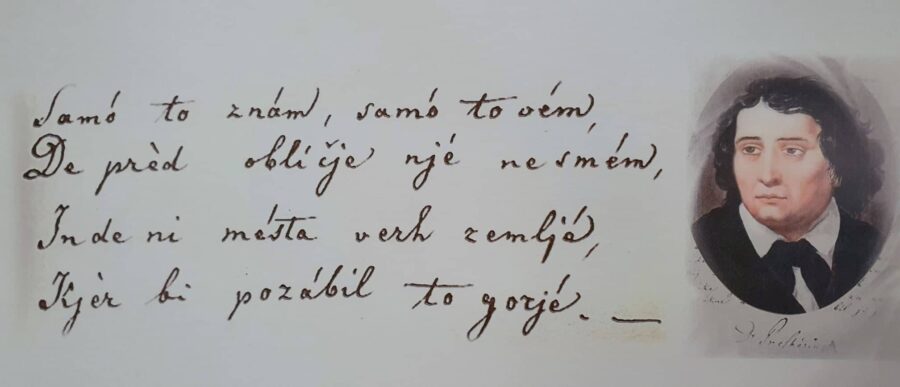 Samó to znám, samó to vém,
De prèd oblíčje njé ne smém,
In de ni mésta verh zemljé,
Kjèr bi pozábil to gorjé. —